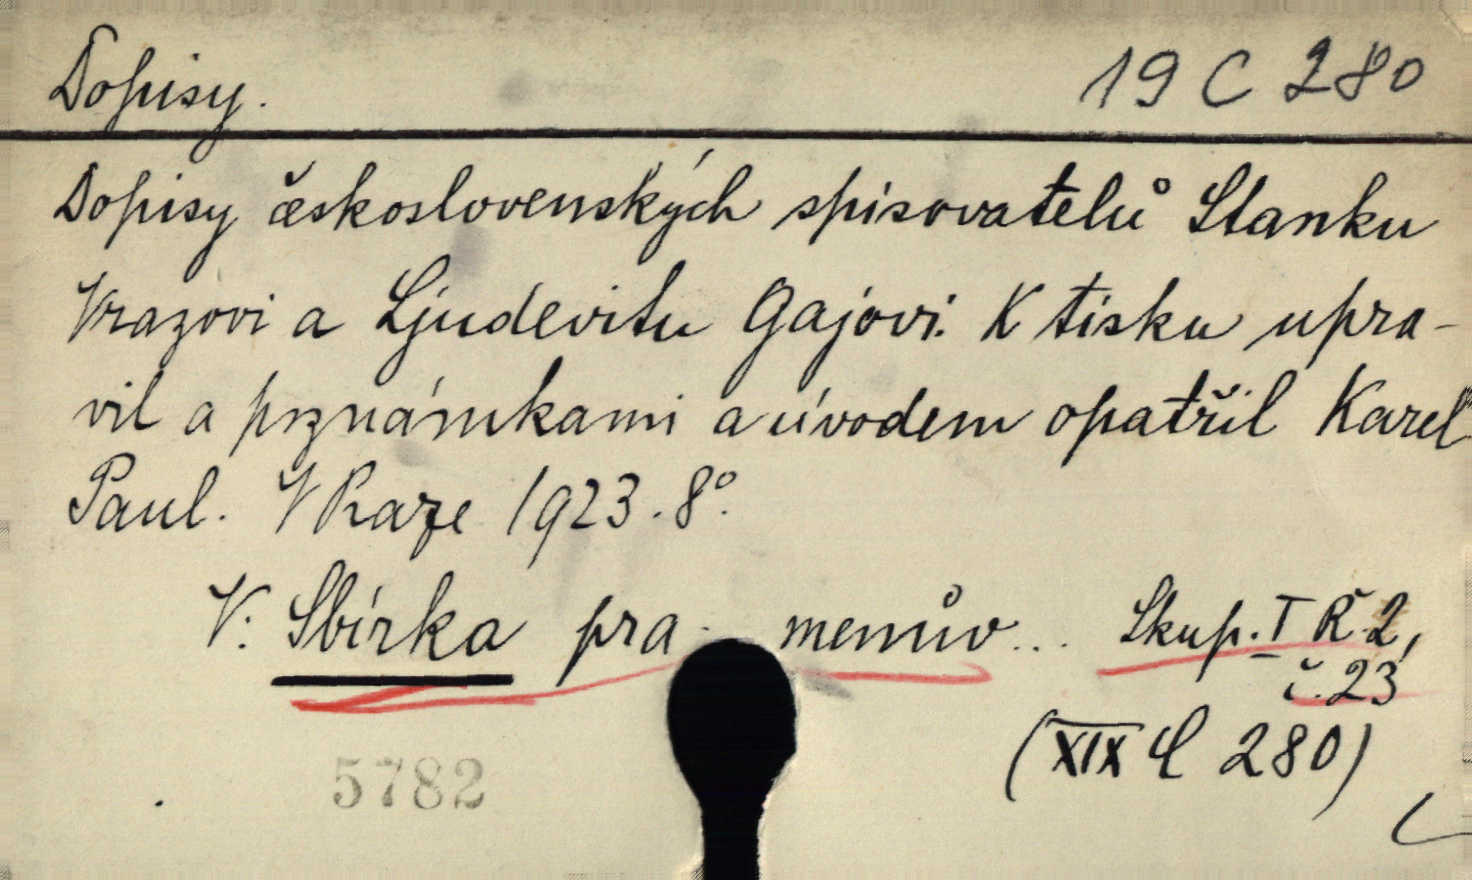 Dopisy. 19 C 280
Dopisy československých spisovatelů Stanku
Vrazovi a Ljudevitu Gajovi. K tisku upra-
vil a poznámkami a úvodem opatřil Karel
Paul. V Praze 1923. 8°.
V: Sbírka pra menův... Skup. I Ř. 2,
č. 23
(XIX C 280)
5782